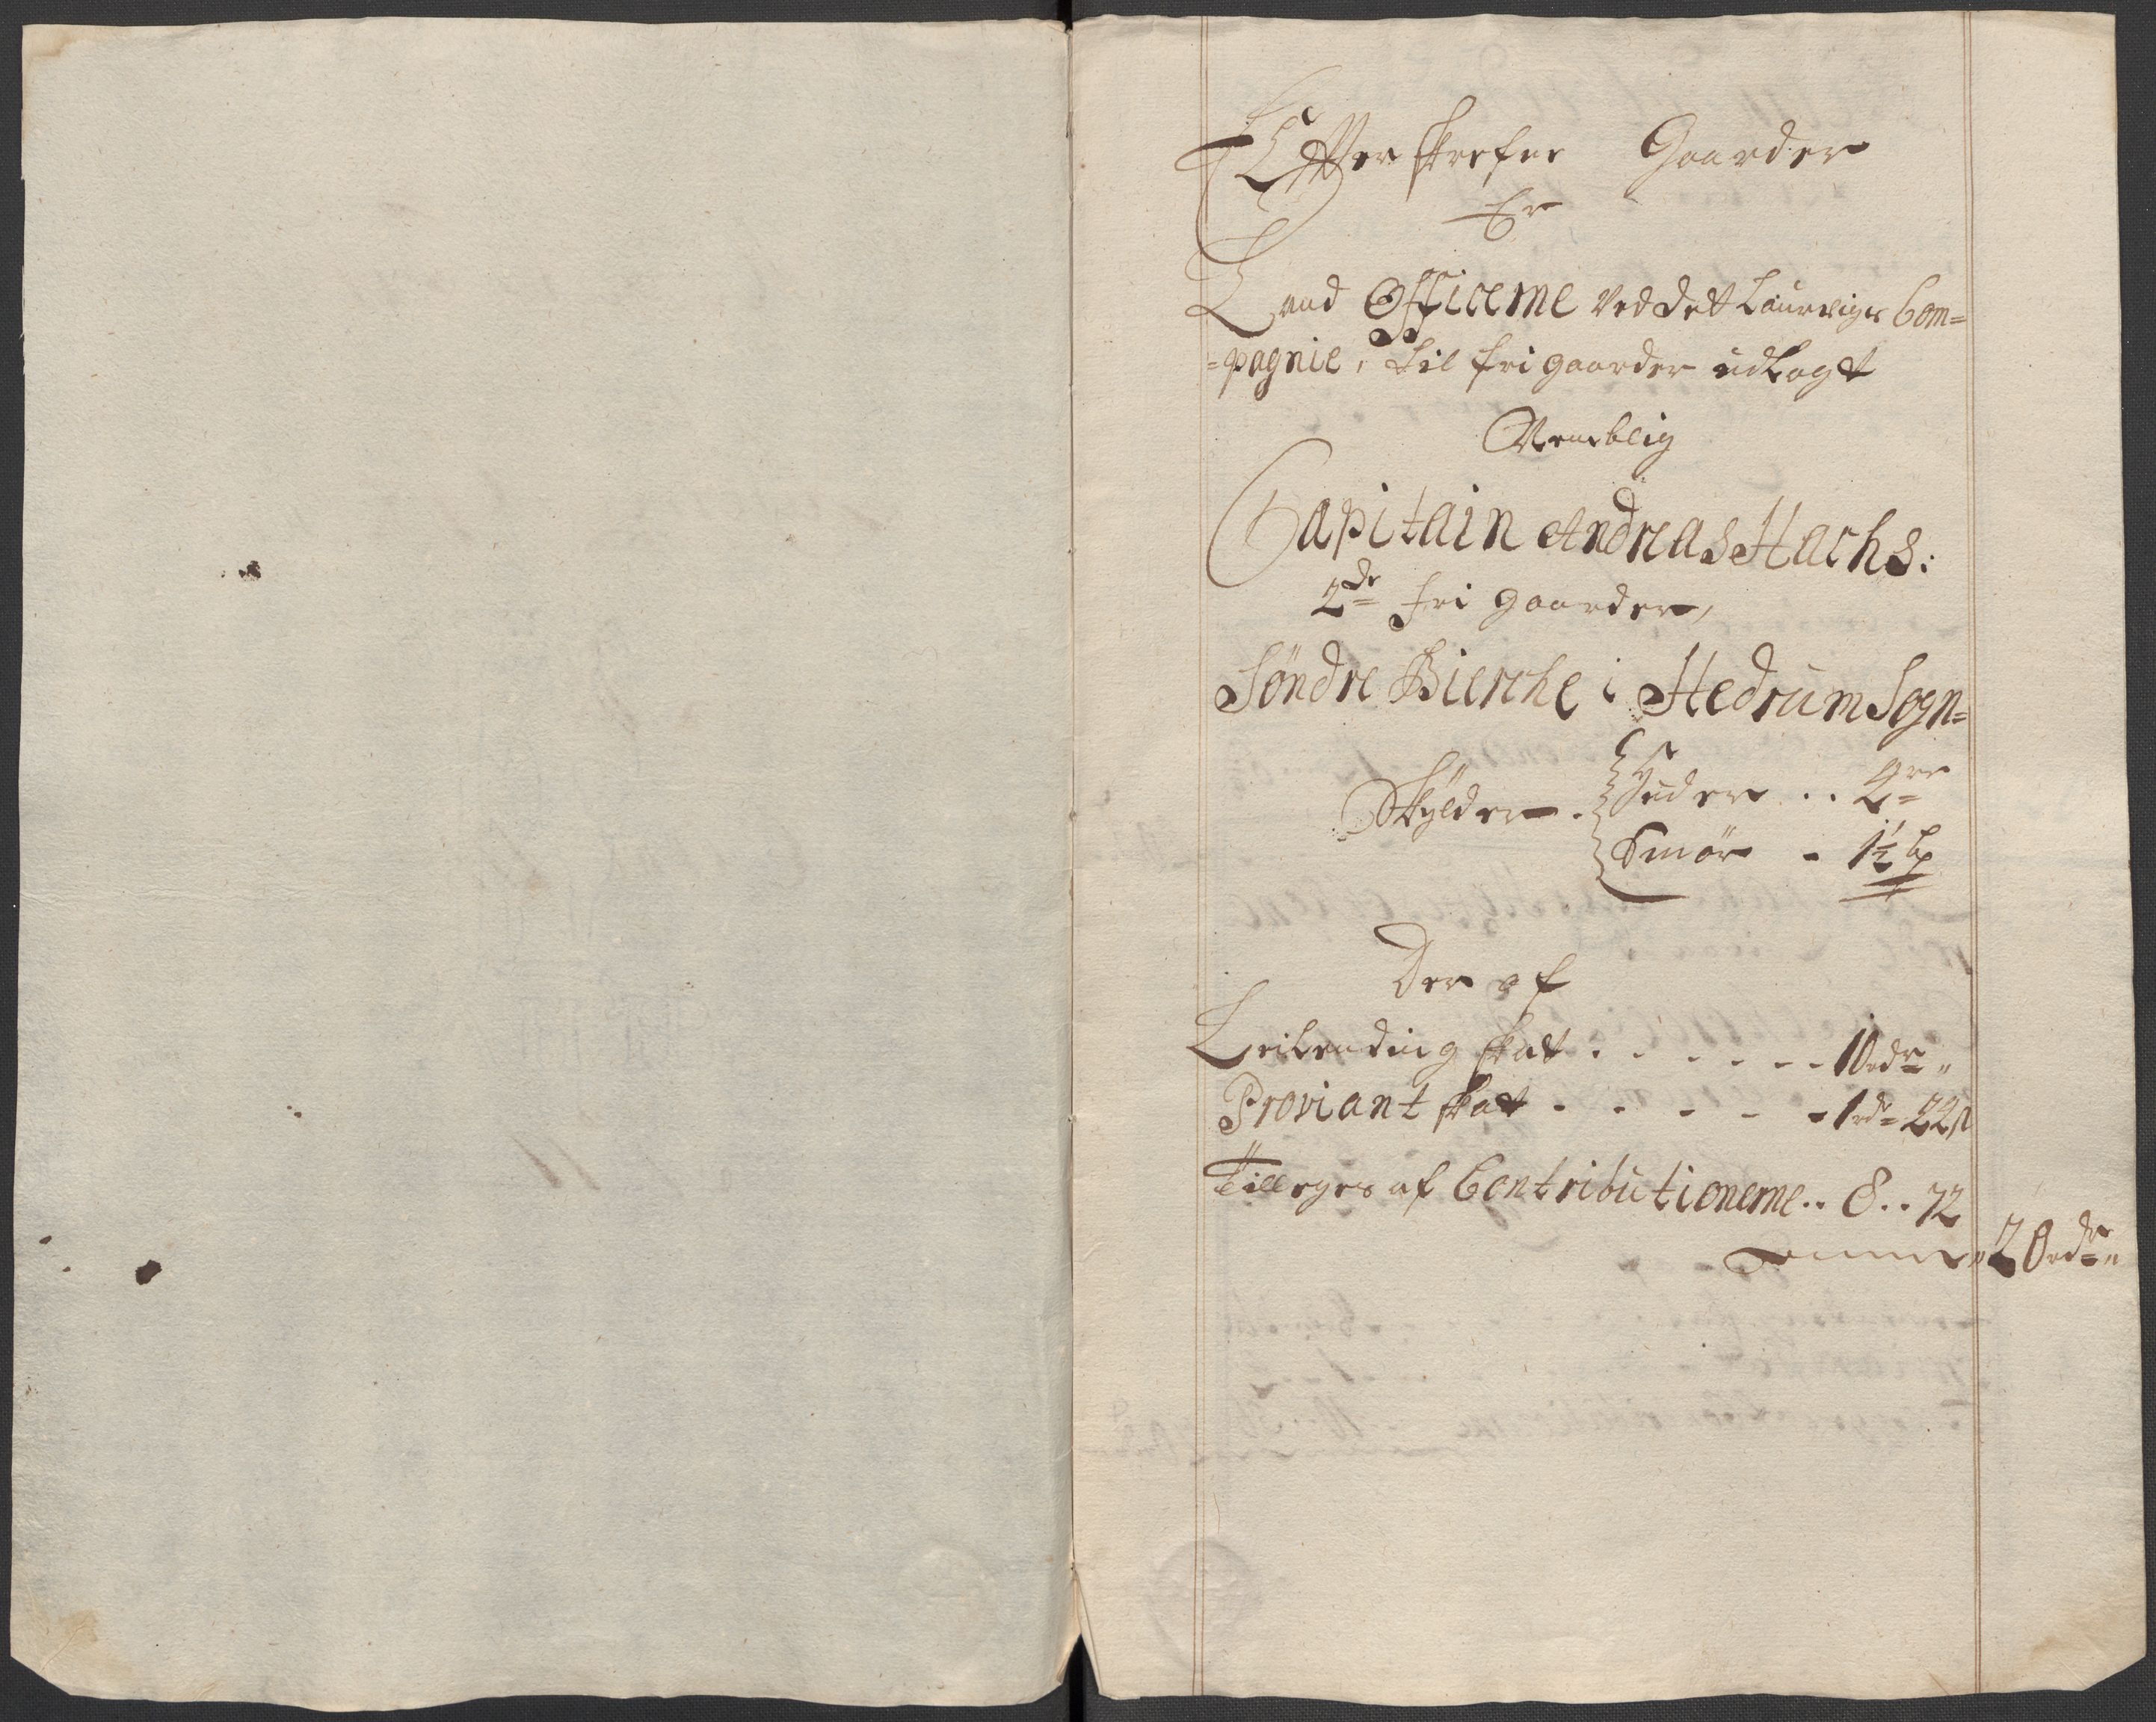 Efterskrefne Gaarder
Er
Land Officerne Ved det Laurvigs Com=
=pagnie, til fri gaarder udlagt
Nemblig
Capitain Andreas Hachs:
2de fri gaarder,
Søndre Bierche i Hedrum Sogn=
Skylder . Huder .. 2
Smør - 1½ Lp
Der af
Leilending skat . - - - - - 10 rdr "
Proviant skat - - - - - 1 rd= 24 s
Tilleges af Contributionerne .. 8 .. 72
Summa " 20 rdr "